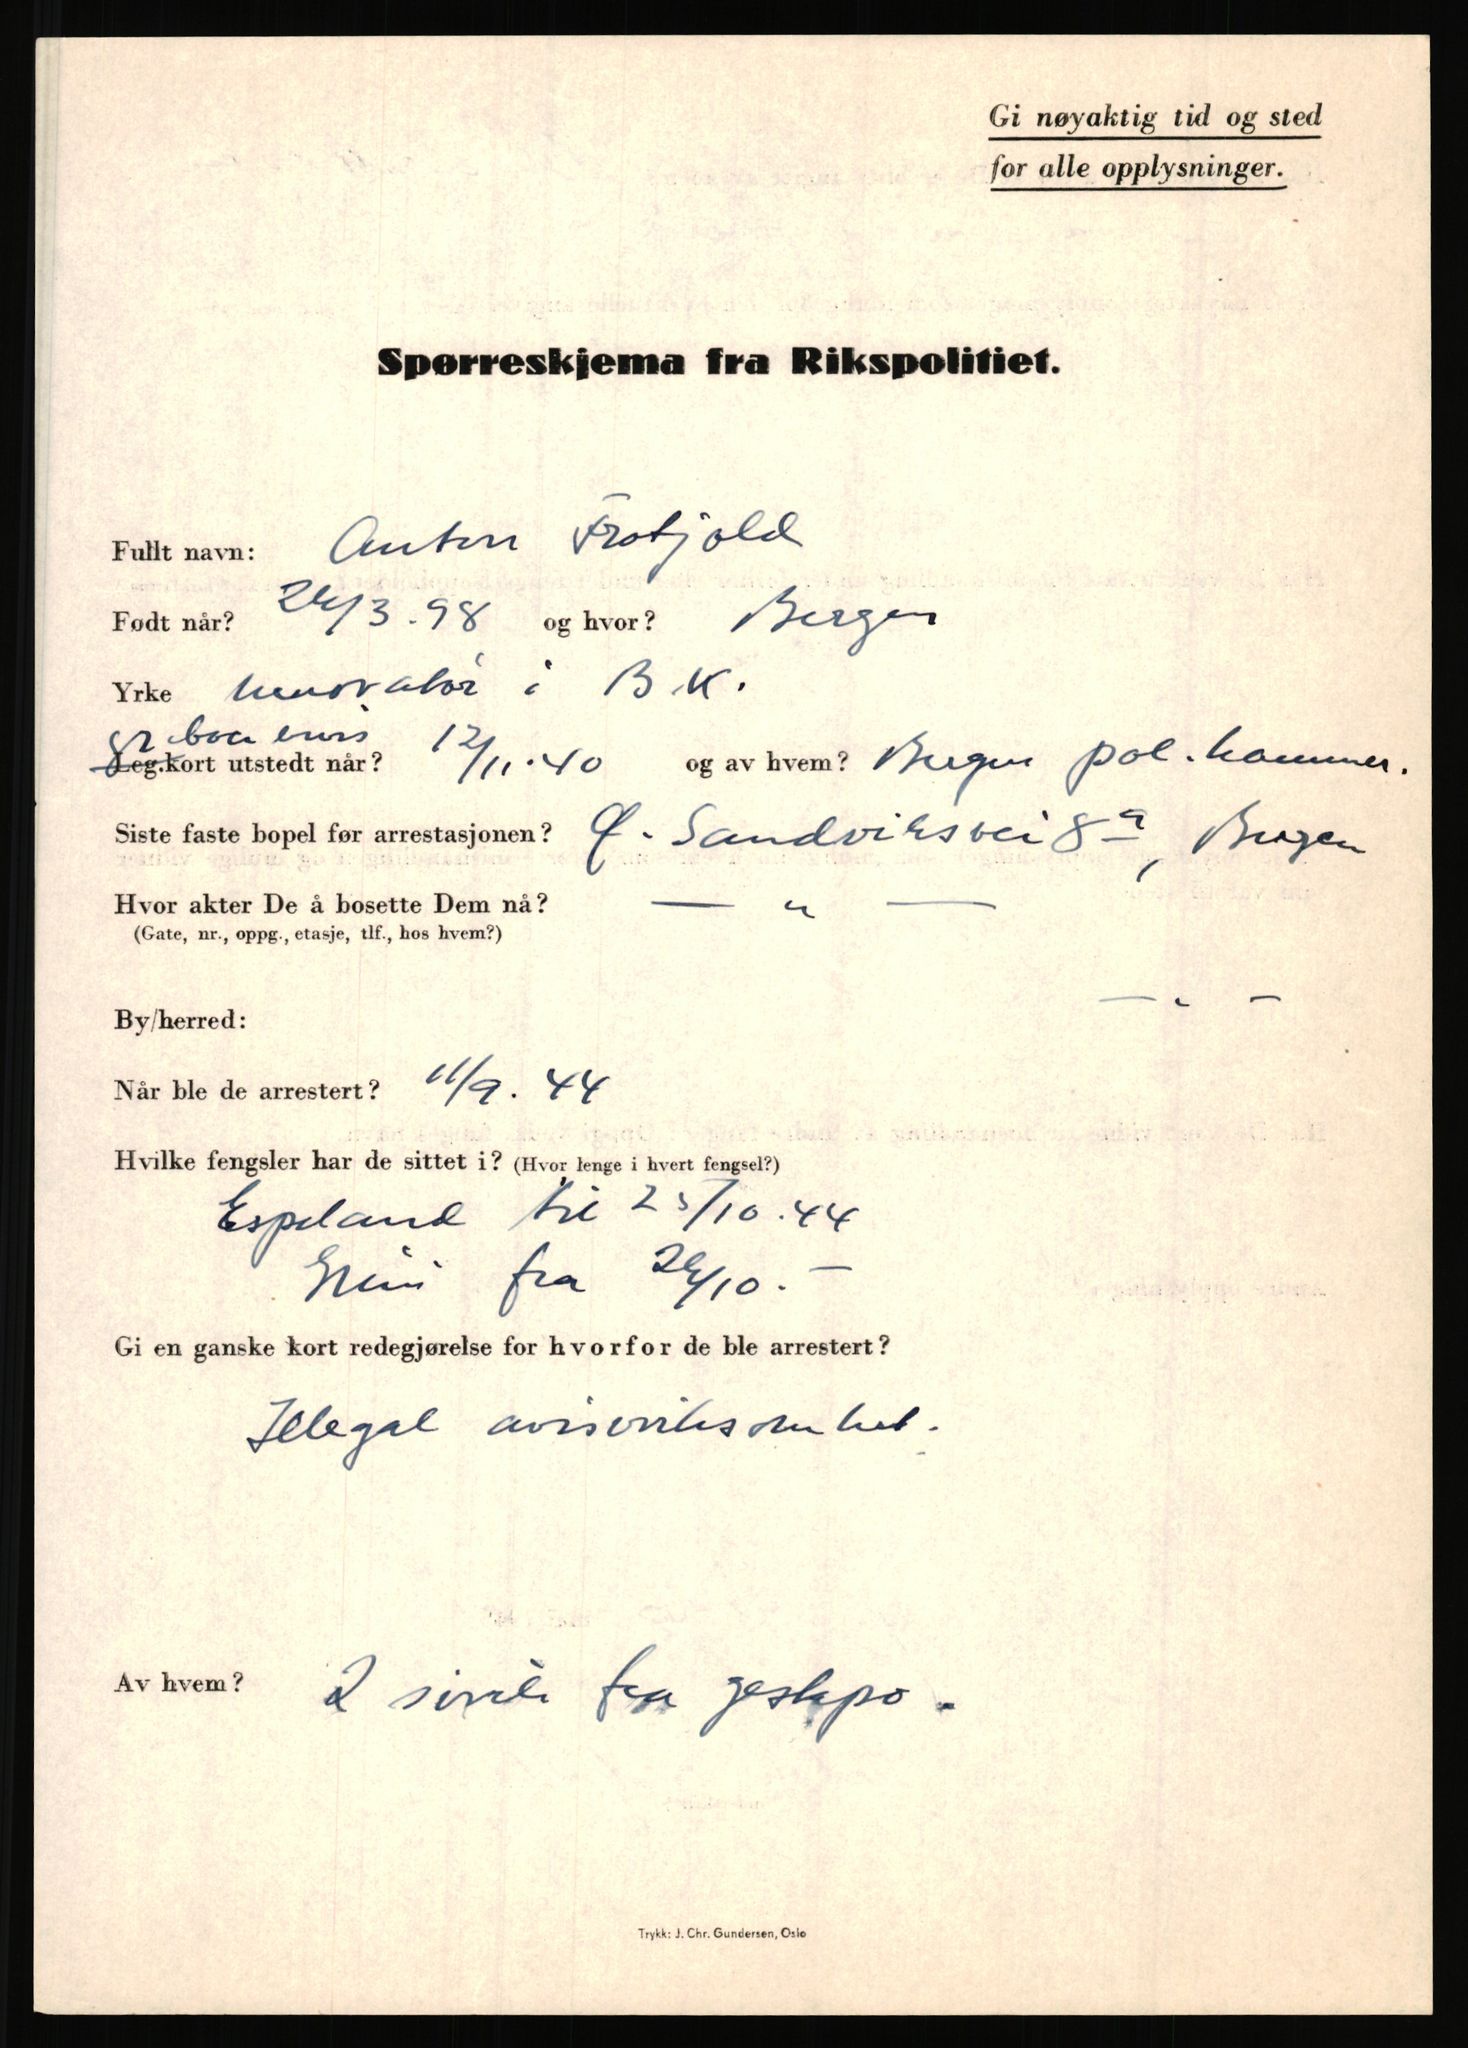 Gi nøyaktig tid og sted
for alle opplysninger.
Spørreskjema fra Rikspolitiet.
Fullt navn: Anton Frotjold
Født når? 24/3.98 og hvor? Bergen
Yrke i B.K.
gr. boer bevis
Leg.kort utstedt når? 12/11.40 og av hvem? Bergen pol.kammer.
Siste faste bopel før arrestasjonen? Ø. Sandviksvei 8a, Bergen
Hvor akter De å bosette Dem nå? — " —
(Gate, nr., oppg., etasje, tlf., hos hvem?)
— " —
By/herred:
Når ble de arrestert? 11/9.44
Hvilke fengsler har de sittet i? (Hvor lenge i hvert fengsel?)
Espeland til 25/10.44
Grini fra 26/10.—
Gi en ganske kort redegjørelse for hvorfor de ble arrestert?
Illegal avisvirksomhet.
Av hvem? 2 sivile fra gestapo.
Trykk: J. Chr. Gundersen, Oslo